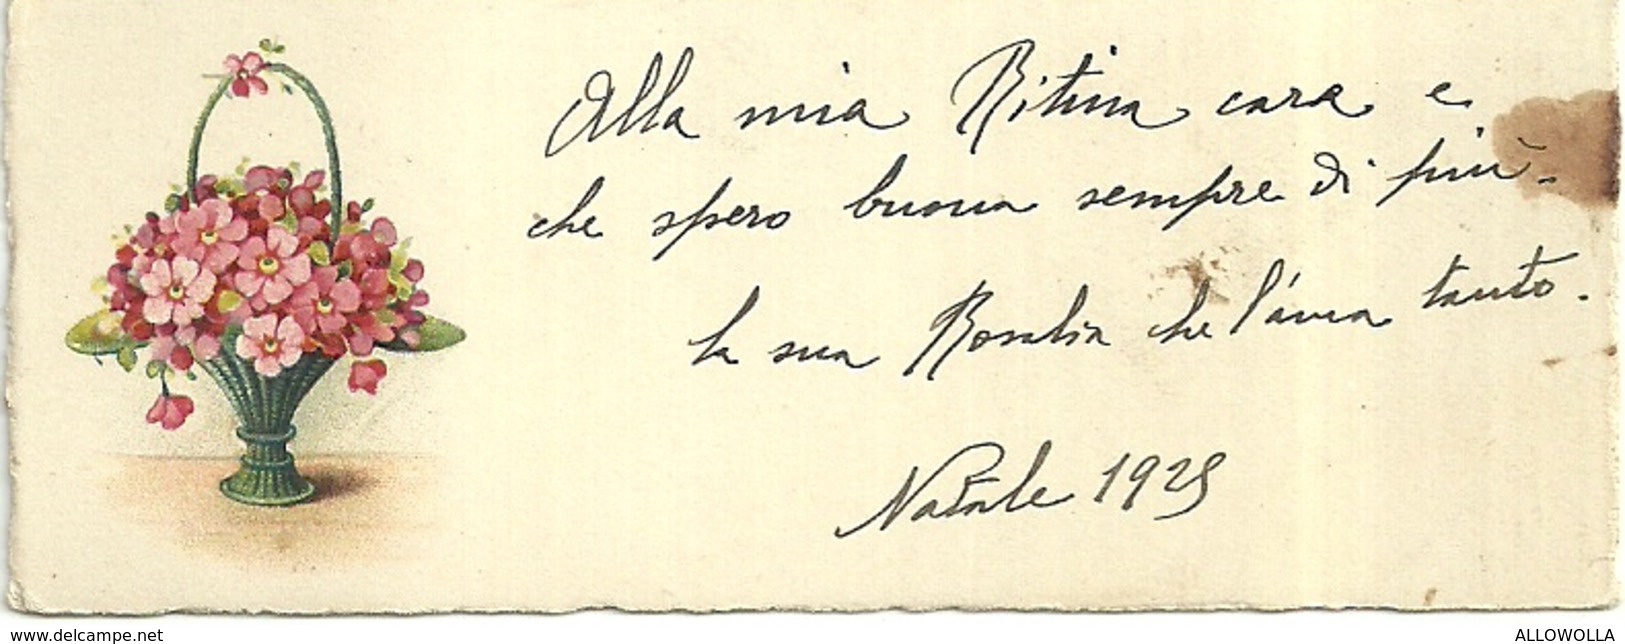 Alla mia Ritina cara e
che spero buona sempre di più.
la sua Rosalia che l'ama tanto.
Natale 1929
www.delcampe.net
ALLOWOLLA